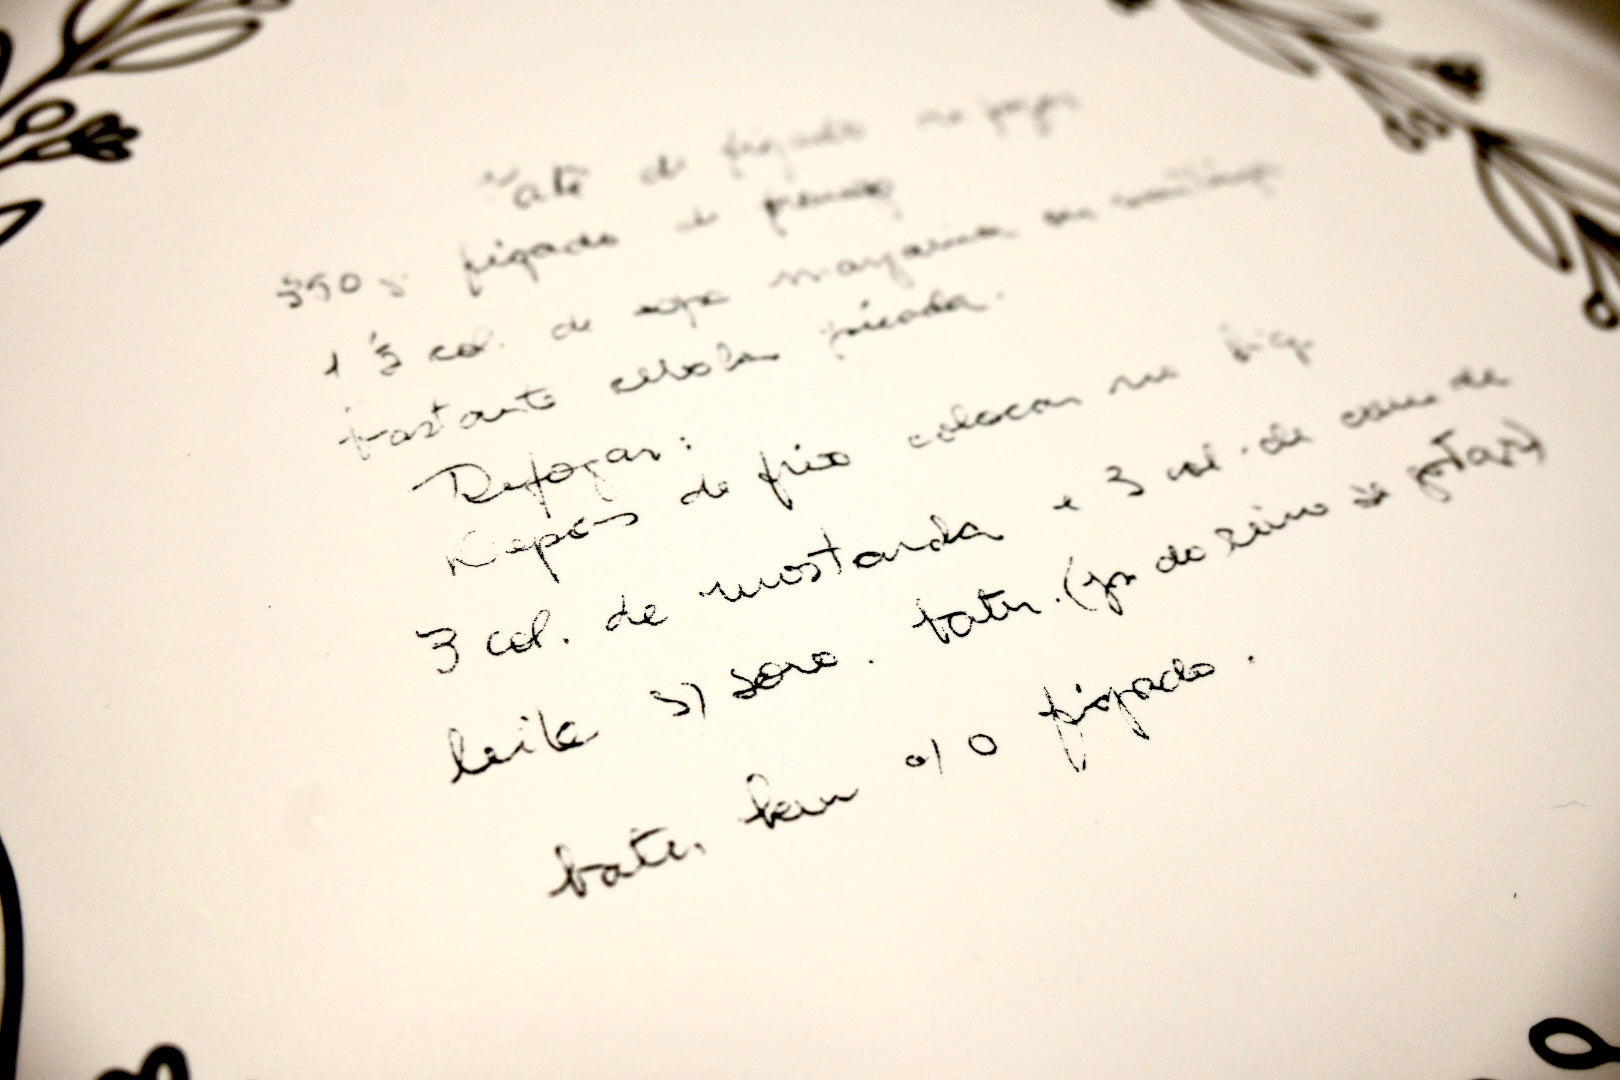 Patê de fígado
350 g fígado de frango
1 3 col. de sopa margarina ou manteiga
bastante cebola picada.
Refogar:
Depois de frio colocar no liq.
3 col. de mostarda e 3 col. de creme de
leite s/ soro. bater. (pm do reino se gostar)
bater bem c/ o fígado.